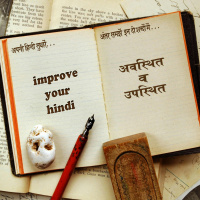 अपनी हिन्दी सुधारें...
improve
your
hindi
अंतर समझें इन दो शब्दों में...
अवस्थित
व
उपस्थित